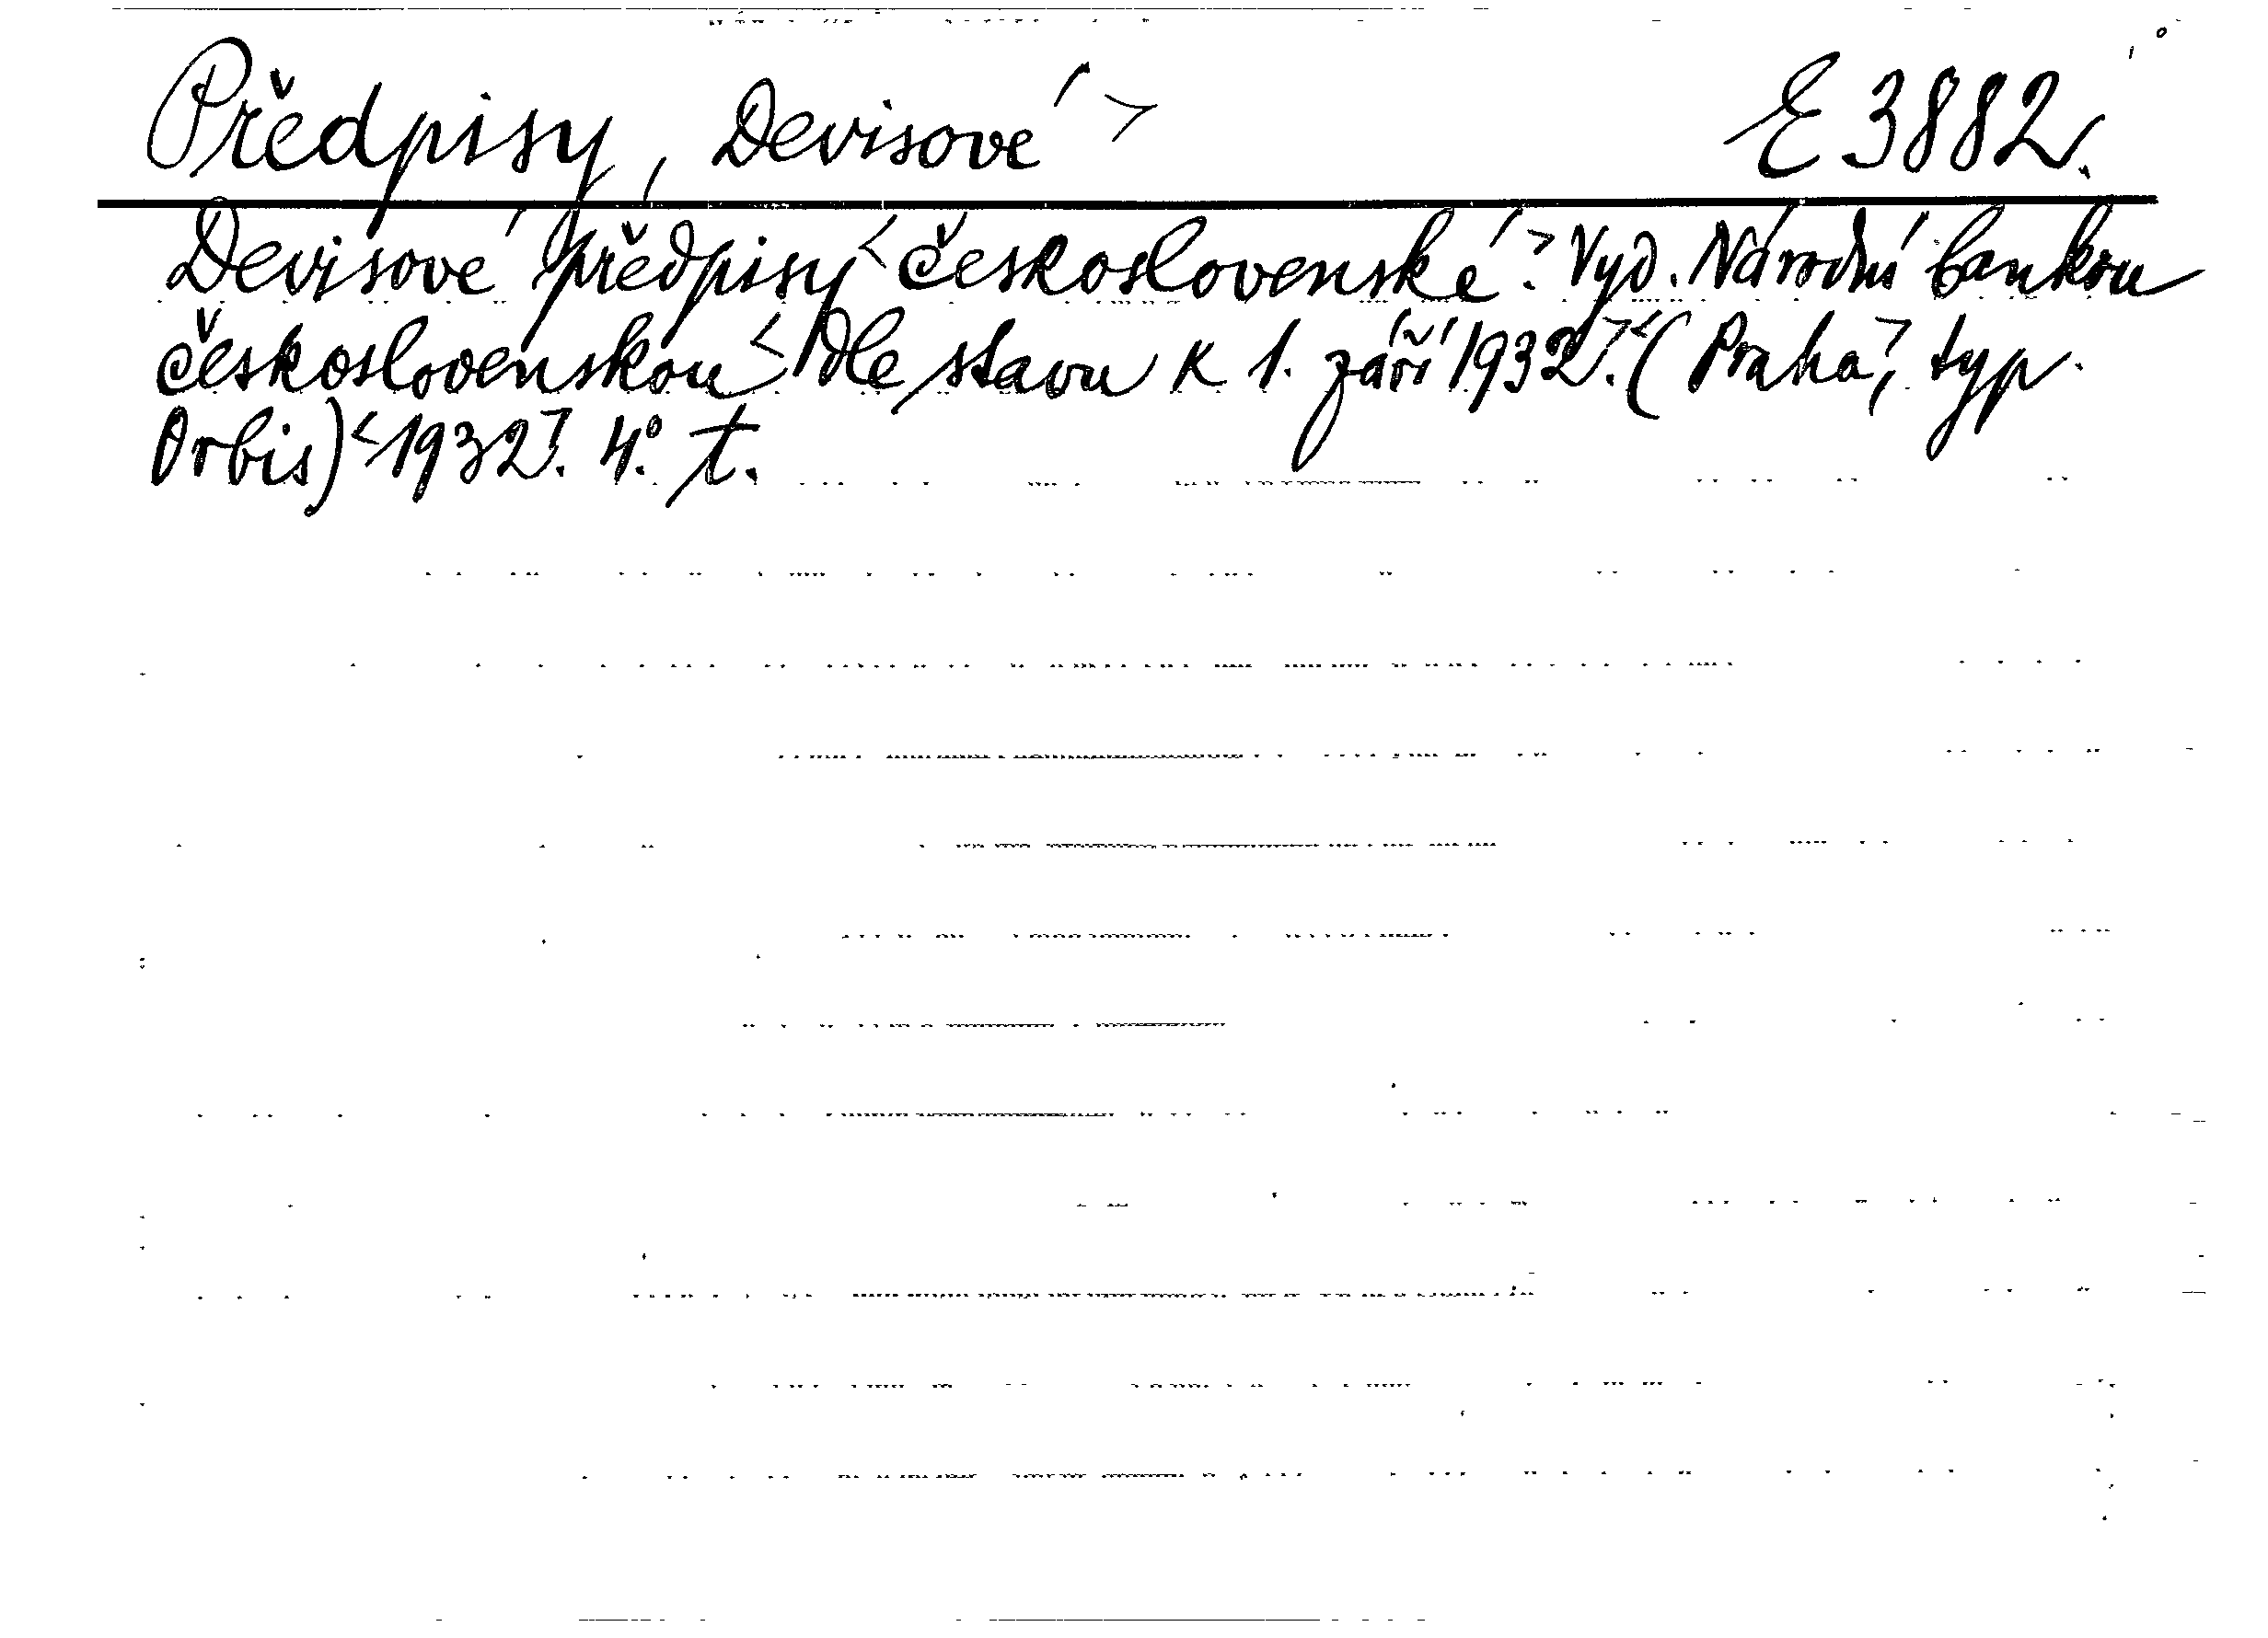 Předpisy, Devisové >
E 3882.
Devisové předpisy < československé >. Vyd. Národní bankou
československou < dle stavu k 1. září 1932 >. < (Praha >, typ.
Orbis) < 1932 >. 4°. t.